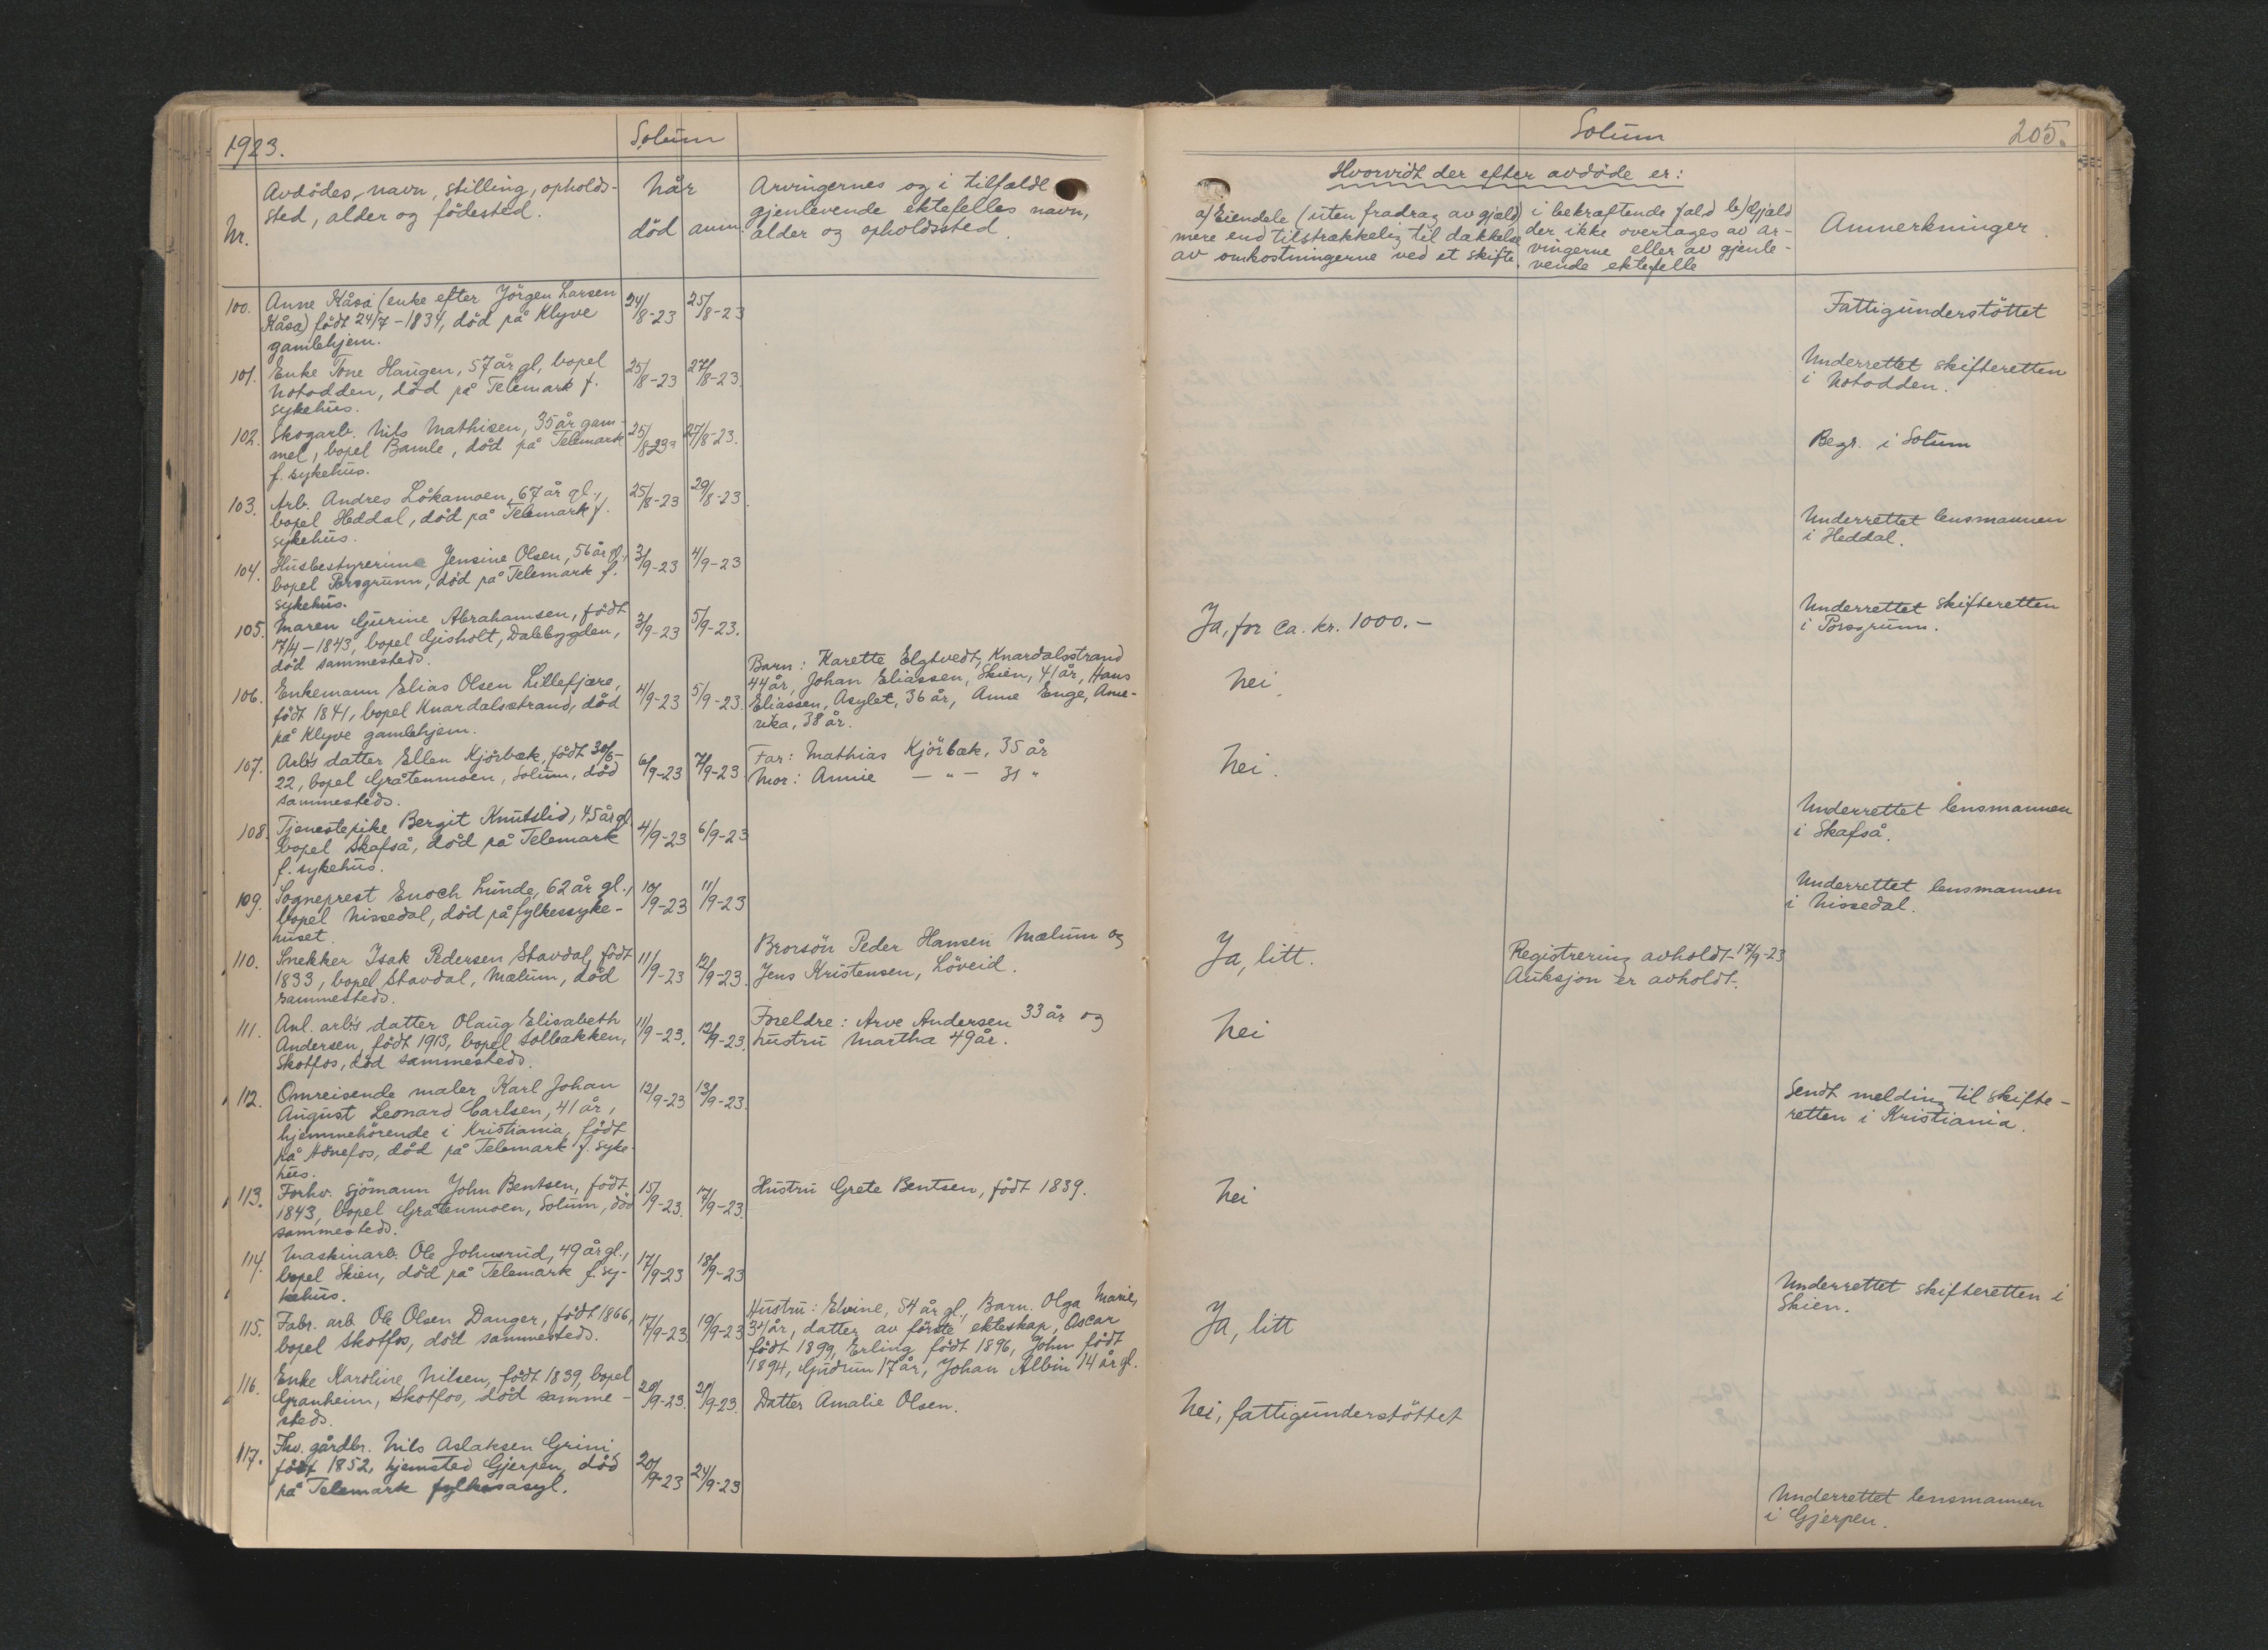 1923.
Solum
Nr.
Avdödes navn, stilling, opholds-
sted, alder og födested.
når
död anm.
Arvingernes og i tilfælde
gjenlevende ektefelles navn,
alder og opholdssted.
100. Anne Kåsa (enke efter Jörgen Larsen 24/8-23 25/8-23
Kåsa) födt 24/7-1834, död på Klyve
gamlehjem.
101. Enke Tone Haugen, 57 år gl, bopel 25/8-23 27/8-23
Notodden, död på Telemark f.
sykehus.
102. Skogarb. Nils Mathisen, 35 år gam- 25/8-23 27/8-23.
mel, bopel Bamle, död på Telemark
f. sykehus.
103. Arb. Andres Lökamoen, 67 år gl., 25/8-23 29/8-23
bopel Heddal, död på Telemark f.
sykehus.
104. Husbestyrerinne Jensine Olsen, 56 år gl., 3/9-23 4/9-23
bopel Porsgrunn, död på Telemark f.
sykehus.
105. Maren Gurine Abrahamsen, födt 3/9-23 5/9-23.
17/4-1843, bopel Gisholt, Dalsbygden,
död sammesteds.
106. Enkemann Elias Olsen Lillefjære, 4/9-23 5/9-23.
födt 1841, bopel Knardalsstrand, död
på Klyve gamlehjem.
Barn: Karette Elgtvedt, Knardalsstrand
44 år, Johan Eliassen, Skien, 41 år, Hans
Eliassen, Asylet, 36 år, Anne Enge, Ame-
rika, 38 år.
107. Arb's datter Ellen Kjörbæk, födt 30/6- 6/9-23 7/9-23
22, bopel Gråtenmoen, Solum, död
sammesteds.
Far: Mathias Kjörbæk, 35 år
Mor: Annie — " — 31 "
108. Tjenestepike Bergit Knutslid, 45 år gl. 4/9-23 6/9-23
bopel Skafså, död på Telemark
f. sykehus.
109. Sogneprest Enoch Lunde, 62 år gl., 10/9-23 11/9-23
bopel Nissedal, död på fylkessyke-
huset.
110. Snekker Isak Pedersen Stavdal, födt 11/9-23 12/9-23.
1833, bopel Stavdal, Mælum, död
sammesteds.
Brorsön Peder Hansen Mælum og
Jens Kristensen, Löveid.
111. Anl. arb's datter Olaug Elisabeth 11/9-23. 12/9-23.
Andersen, födt 1913, bopel Solbakken,
Skotfos, död sammesteds.
Foreldre: Arve Andersen 33 år og
hustru Martha 49 år.
112. Omreisende maler Karl Johan 12/9-23 13/9-23.
August Leonard Carlsen, 41 år,
hjemmehörende i Kristiania, födt
på Hönefos, död på Telemark f. syke-
hus.
113. Forhv. sjömann John Bentsen, födt 15/9-23. 17/9-23.
1843, bopel Gråtenmoen, Solum, död
sammesteds.
Hustru Grete Bentsen, födt 1839.
114. Maskinarb. Ole Johnsrud, 49 år gl., 17/9-23 18/9-23
bopel Skien, död på Telemark f. sy-
kehus.
115. Fabr. arb Ole Olsen Danger, födt 1866, 17/9-23 19/9-23
bopel Skotfos, död sammesteds.
Hustru: Elvine, 54 år gl., Barn. Olga Marie,
34 år, datter av förste ekteskap, Oscar
födt 1899, Erling födt 1896, John födt
1894, Gudrun 17 år, Johan Albin 14 år gl.
116. Enke Karoline Nilsen, födt 1839, bopel 20/9-23. 21/9-23.
Granheim, Skotfos, död samme-
steds.
Datter Amalie Olsen.
117. Fhv. gårdbr. Nils Aslaksen Grini 20/9-23 24/9-23
födt 1852, hjemsted Gjerpen, död
på Telemark fylkesasyl.
Solum
205.
Hvorvidt der efter avdöde er:
a) Eiendele (uten fradrag av gjeld)
mere end tilstrækkelig til dækkelse
av omkostningerne ved et skifte.
i bekræftende fald b) Gjæld
der ikke overtages av ar-
vingerne eller av gjenle-
vende ektefelle
Anmerkninger.
Fattigunderstöttet
Underrettet skifteretten
i Notodden.
Begr. i Solum
Underrettet lensmannen
i Heddal.
Underrettet skifteretten
i Porsgrunn.
Ja, for ca. kr. 1000.-
Nei.
Nei.
Underrettet lensmannen
i Skafså.
Underrettet lensmannen
i Nissedal.
Ja, litt.
Registrering avholdt 17/9-23
Auksjon er avholdt.
Nei
Sendt melding til skifte-
retten i Kristiania.
Nei
Underrettet skifteretten i
Skien.
Ja, litt
Nei, fattigunderstöttet
Underrettet lensmannen
i Gjerpen.